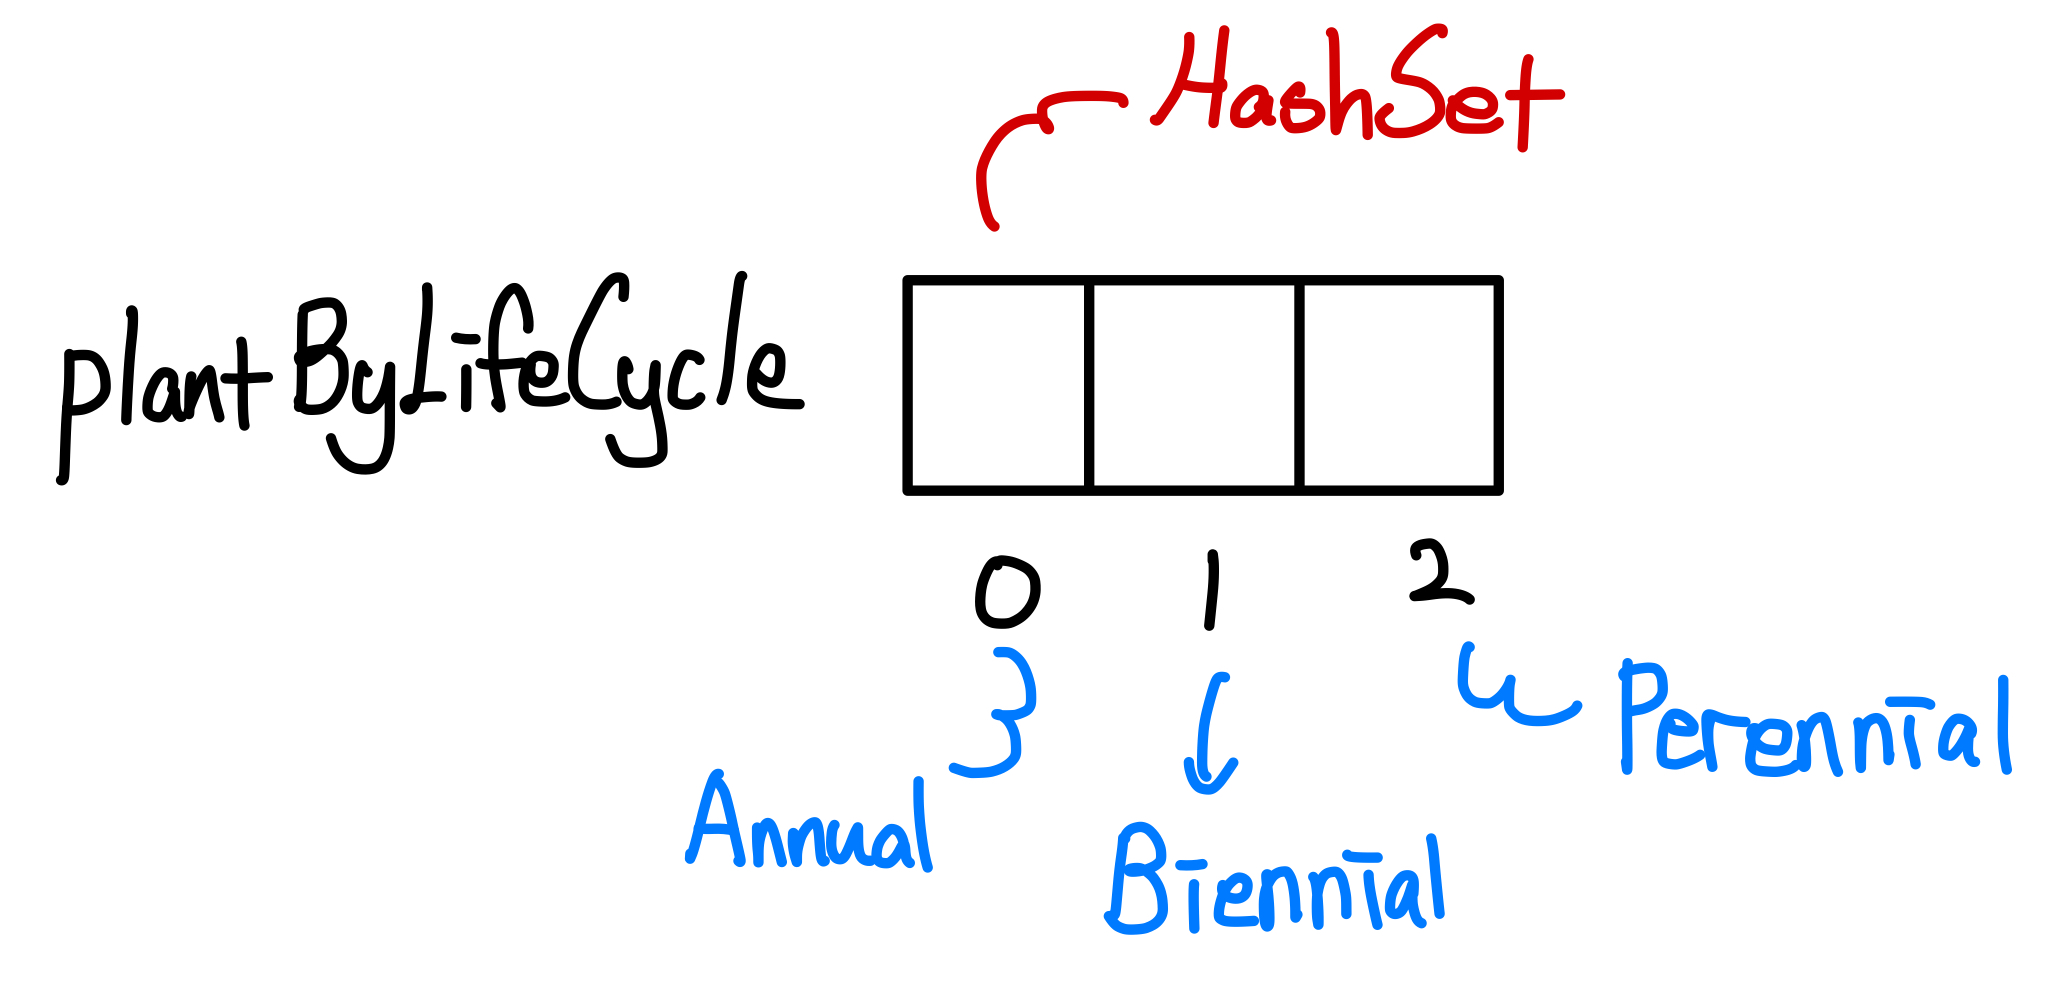 HashSet
plantByLifeCycle
0 1 2
Annual
Biennial
Perennial